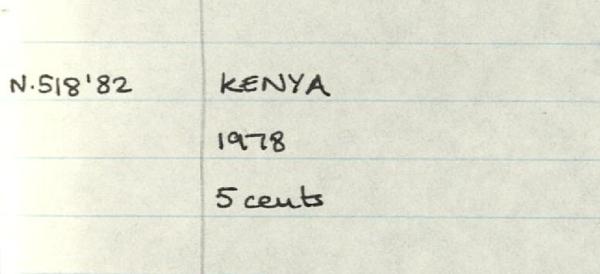 N.518'82 KENYA
1978
5 cents